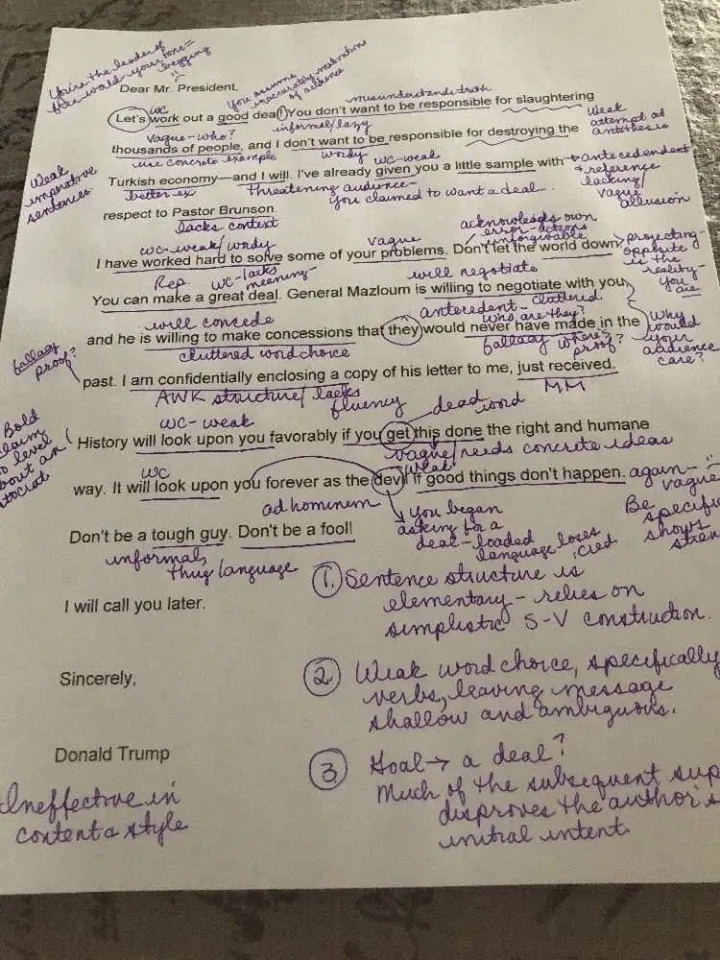 You're the leader of
free world your tone=
begging
Dear Mr. President,
wc
you assume
inaccurately motivations
of audience
misunderstands truth
Let's work out a good deal! You don't want to be responsible for slaughtering
Vague-who?
informal/lazy
Weak
attempt at
antithesis
thousands of people, and I don't want to be responsible for destroying the
use concrete example
wordy
wc-weak
Weak
imperative
sentences
Turkish economy—and I will. I've already given you a little sample with
antecedendent
& reference
lacking/
vague
allusion
better ex
threatening audience-
you claimed to want a deal..
respect to Pastor Brunson.
lacks context
acknowleads own
error-actions
unforgivable
wc-weak/wordy
vague
I have worked hard to solve some of your problems. Don't let the world down.
projecting-
opposite
is the
reality-
you
are
Rep.
wc-lacks
meaning-
will negotiate
You can make a great deal. General Mazloum is willing to negotiate with you,
will concede
antecedent-cluttered
who are they?
and he is willing to make concessions that they would never have made in the
why
would
your
audience
care?
fallacy
proof?
cluttered word choice
fallacy where's
proof?
past. I am confidentially enclosing a copy of his letter to me, just received.
AWK structure/lacks
fluency
MM
Bold
claim
to level
about an
wc-weak
dead word
History will look upon you favorably if you get this done the right and humane
vague/needs concrete ideas
wc
weak
way. It will look upon you forever as the devil if good things don't happen.
again-
vague
ad hominem
you began
asking for a
deal-loaded
language loses
Be
specific
shows
Don't be a tough guy. Don't be a fool!
informal,
thug language
I will call you later.
① Sentence structure is
elementary-relies on
simplistic S-V construction.
Sincerely,
② Weak word choice, specifically
verbs, leaving message
shallow and ambiguous.
Donald Trump
③ Goal→ a deal?
Much of the subsequent sup
disproves the author's
initial intent.
Ineffective in
content & style